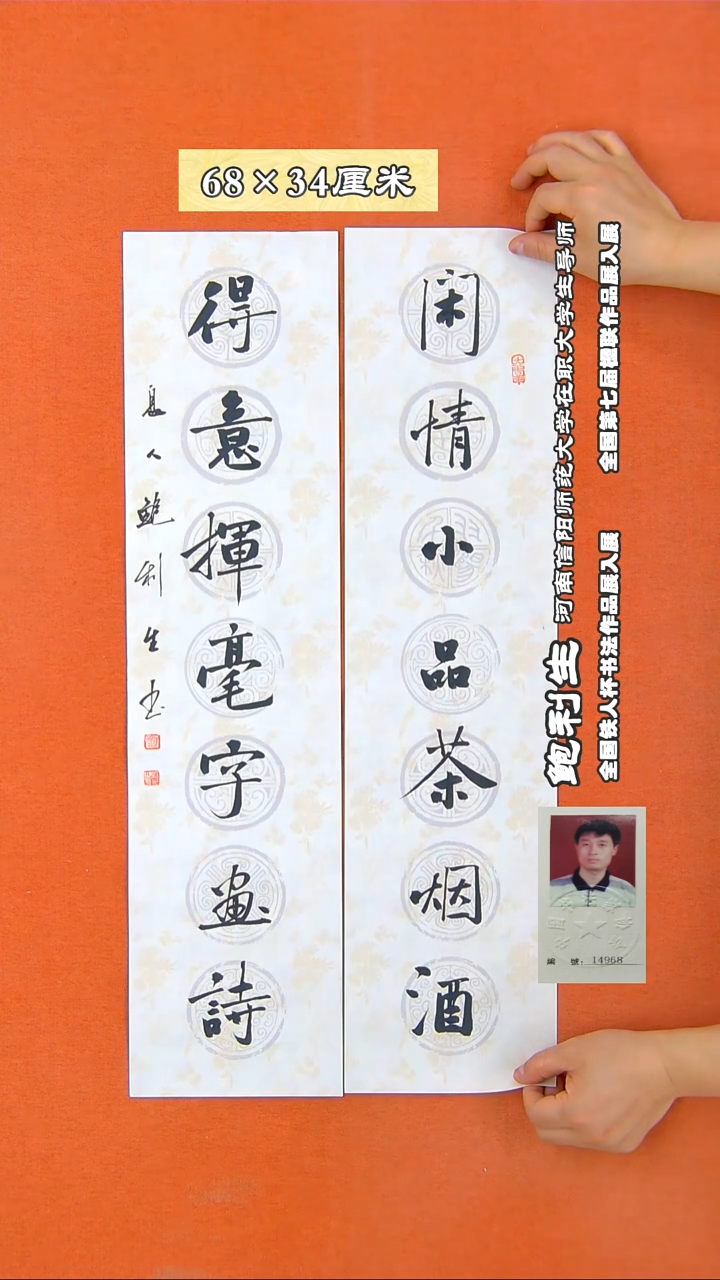 68×34厘米
闲情小品茶烟酒
得意揮毫字畫詩
息人鲍利生书
鲍利生 河南信阳师范大学在职大学生导师
全国铁人杯书法作品展入展 全国第七届楹联作品展入展
編 號：14968